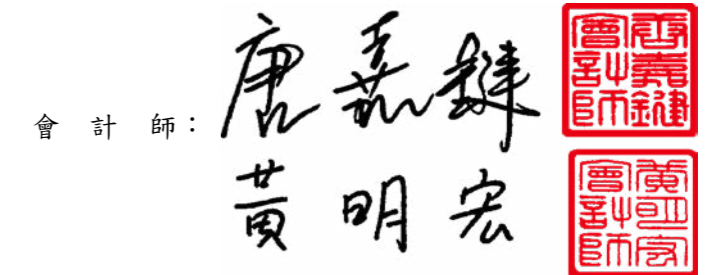 會計師：唐嘉鍵
黃明宏
唐嘉鍵會計師
黃明宏會計師